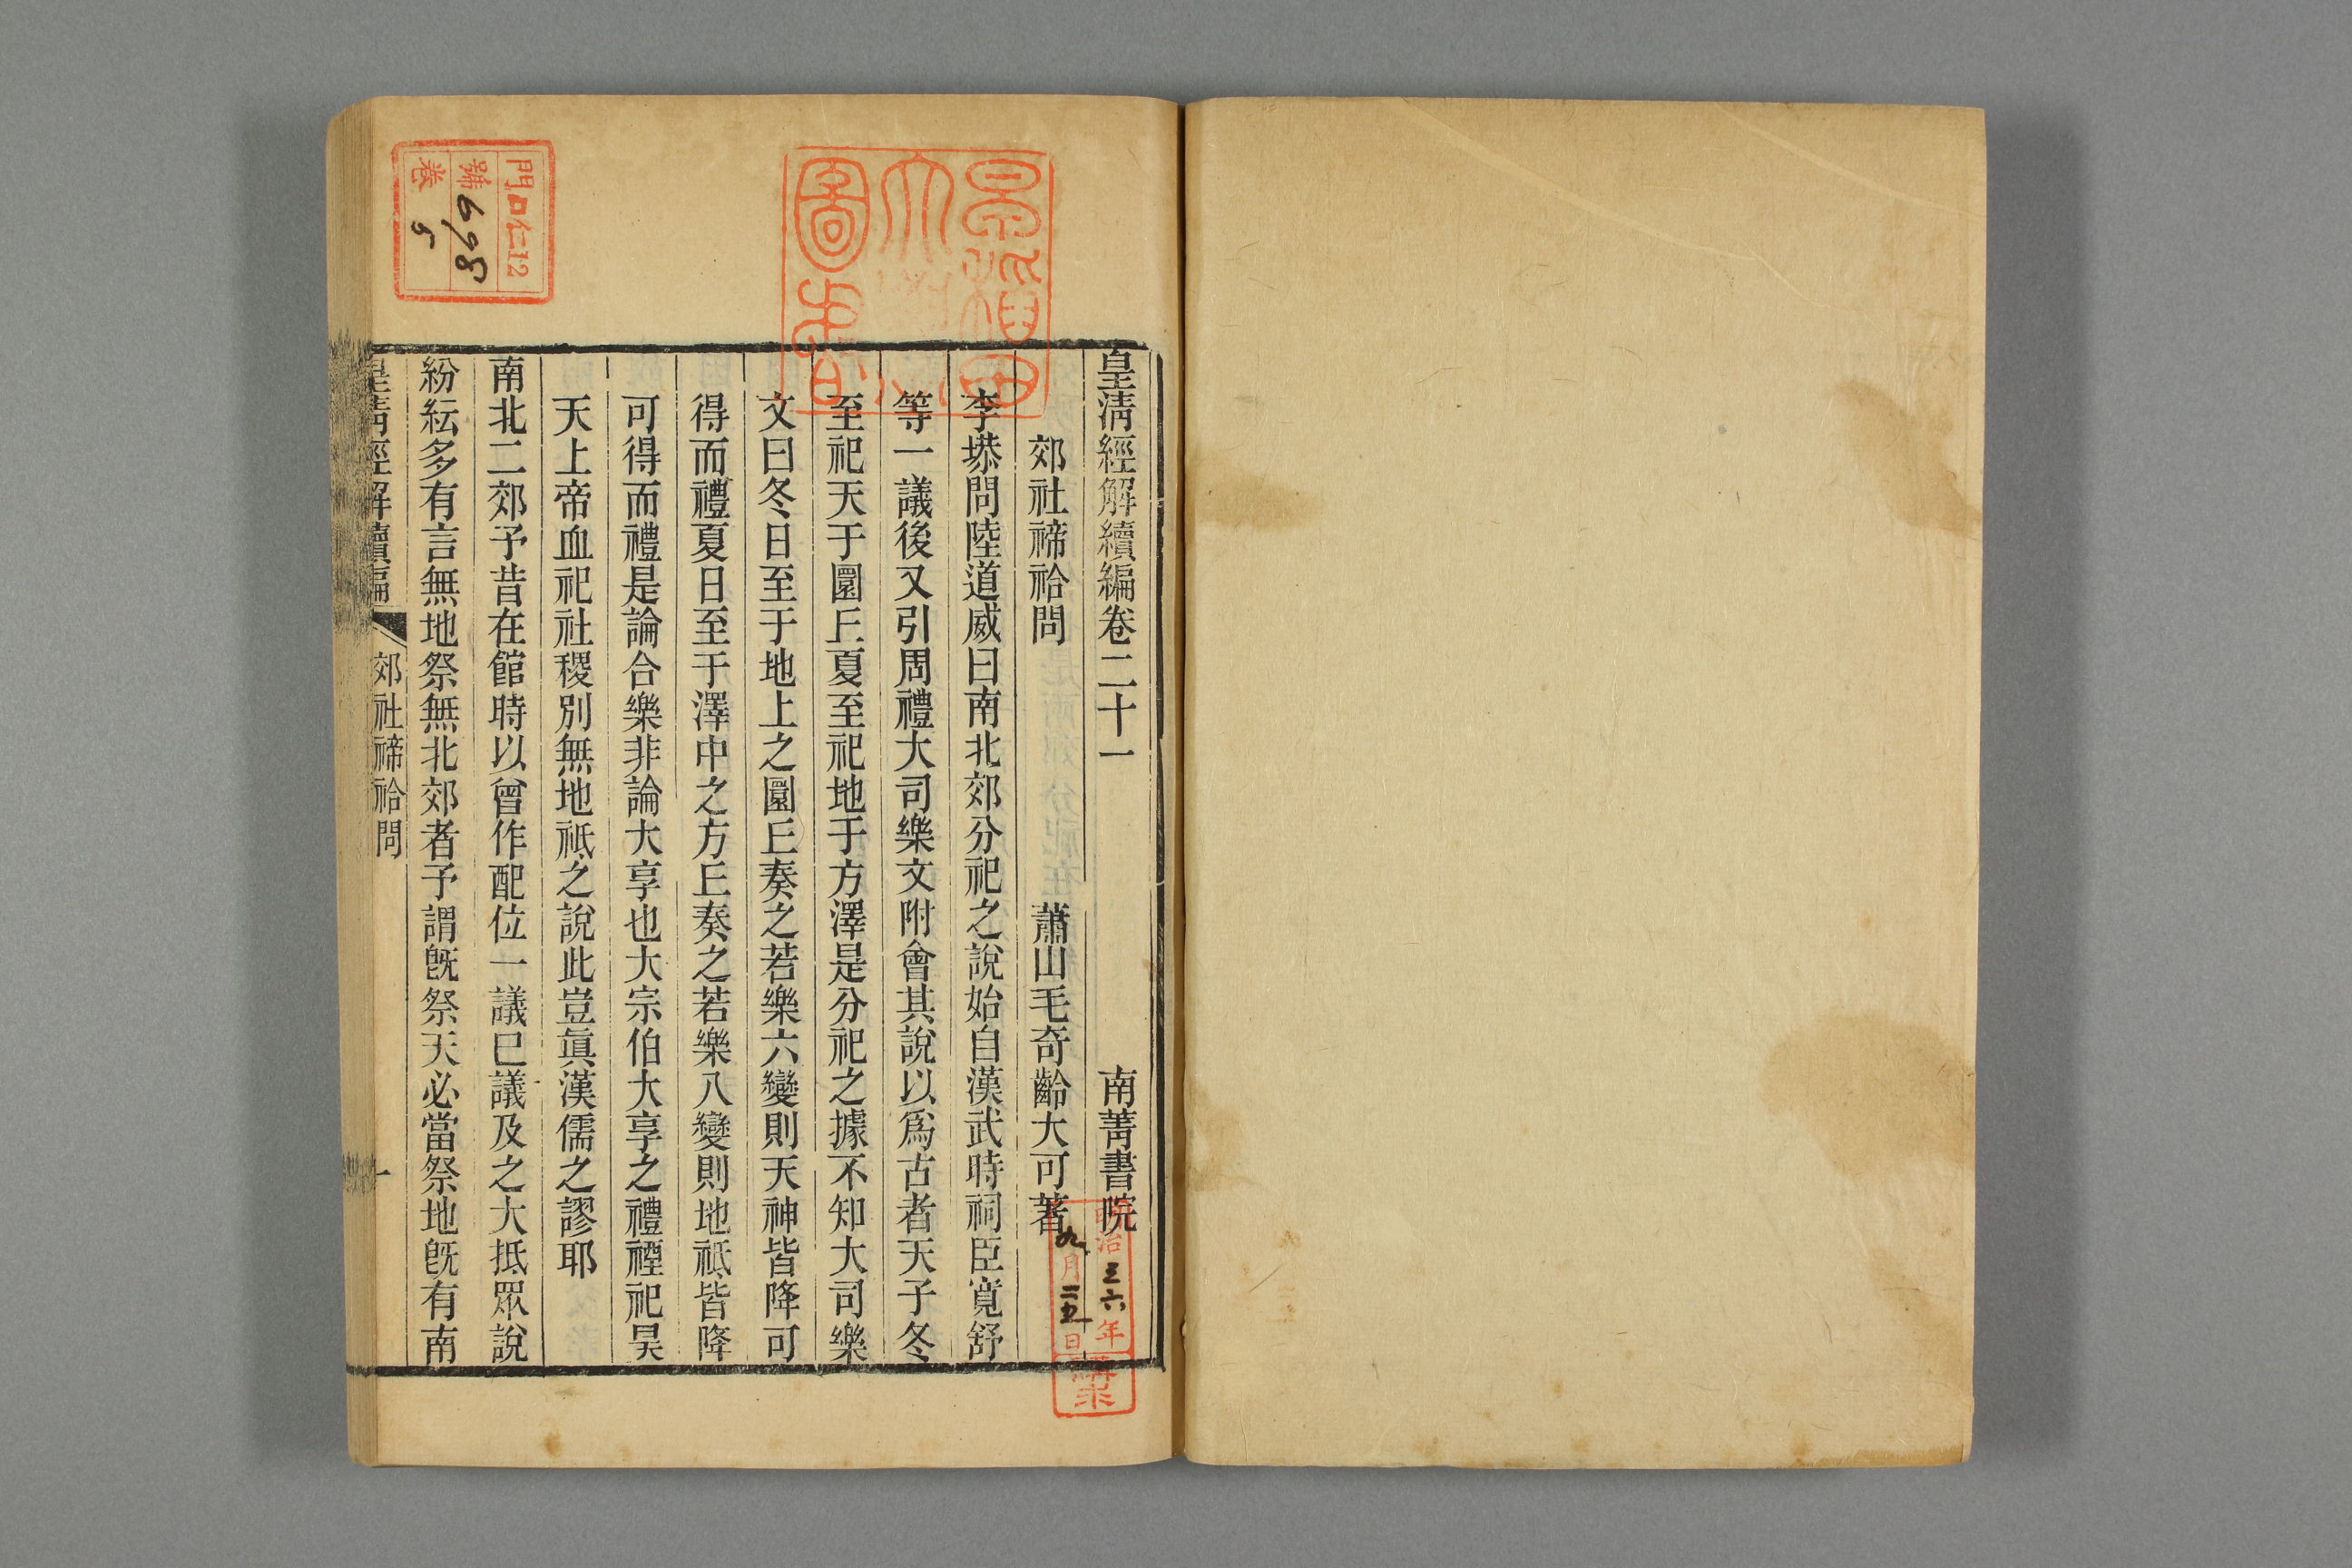 皇淸經解續編卷二十一
南菁書院
郊社禘祫問
蕭山毛奇齡大可著
李塨問陸道威曰南北郊分祀之說始自漢武時祠臣寬舒
等一議後又引周禮大司樂文附會其說以爲古者天子冬
至祀天于圜丘夏至祀地于方澤是分祀之據不知大司樂
文曰冬日至于地上之圜丘奏之若樂六變則天神皆降可
得而禮夏日至于澤中之方丘奏之若樂八變則地祗皆降
可得而禮是論合樂非論大享也大宗伯大享之禮禋祀昊
天上帝血祀社稷別無地祗之說此豈眞漢儒之謬耶
南北二郊予昔在館時以曾作配位一議巳議及之大抵眾說
紛紜多有言無地祭無北郊者予謂旣祭天必當祭地旣有南
皇淸經解續編
郊社禘祫問
一
早稲田
大
圖書
門口仁12
號
卷 5
明治三六年
九月二五日
購求